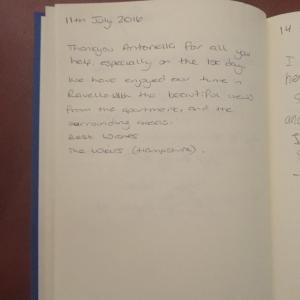 11th July 2016
Thankyou Antonella for all you
help, especially on the 1st day.
We have enjoyed our time in
Ravello with the beautiful views
from the apartment, and the
surrounding areas.
Best Wishes
The (Hampshire).
14
I